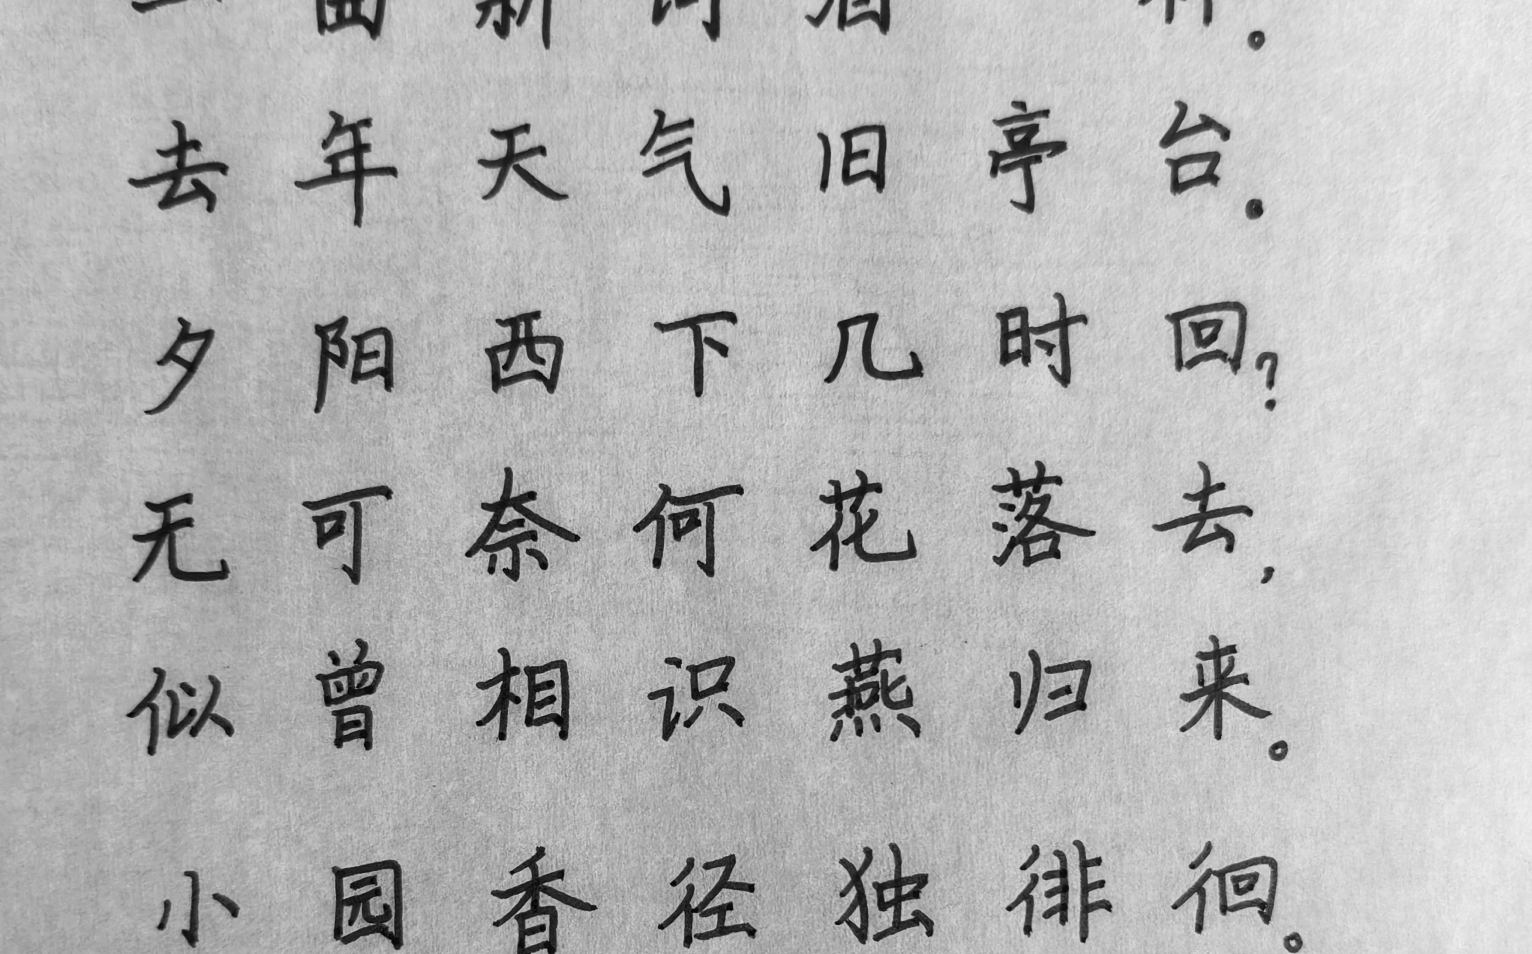 一曲新词酒一杯。
去年天气旧亭台。
夕阳西下几时回?
无可奈何花落去,
似曾相识燕归来。
小园香径独徘徊。